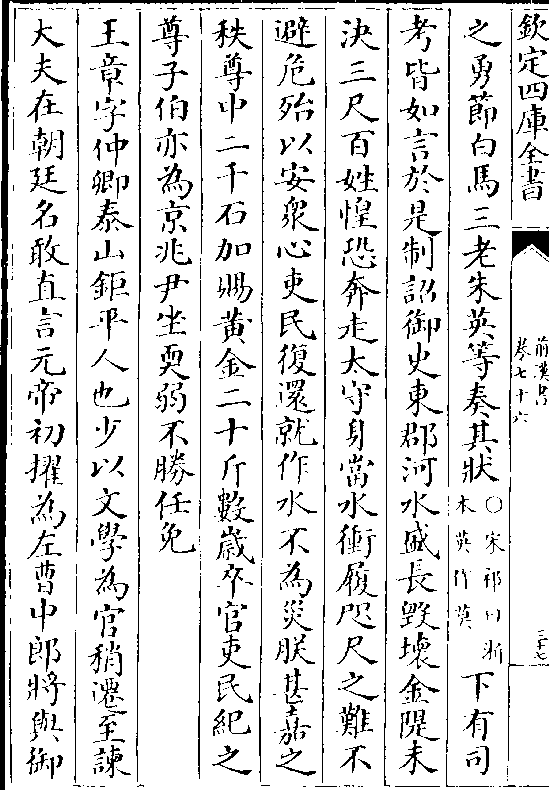 欽定四庫全書
前漢書
卷七十六
三十七
之勇節白馬三老朱英等奏其狀
○宋祁曰浙
本英作莫
下有司
考皆如言於是制詔御史東郡河水盛長毀壞金隄未
決三尺百姓惶恐奔走太守身當水衝履咫尺之難不
避危殆以安衆心吏民復還就作水不為災朕甚嘉之
秩尊中二千石加賜黃金二十斤數歲卒官吏民紀之
尊子伯亦為京兆尹坐耎弱不勝任免
王章字仲卿泰山鉅平人也少以文學為官稍遷至諫
大夫在朝廷名敢直言元帝初擢為左曹中郎將與御